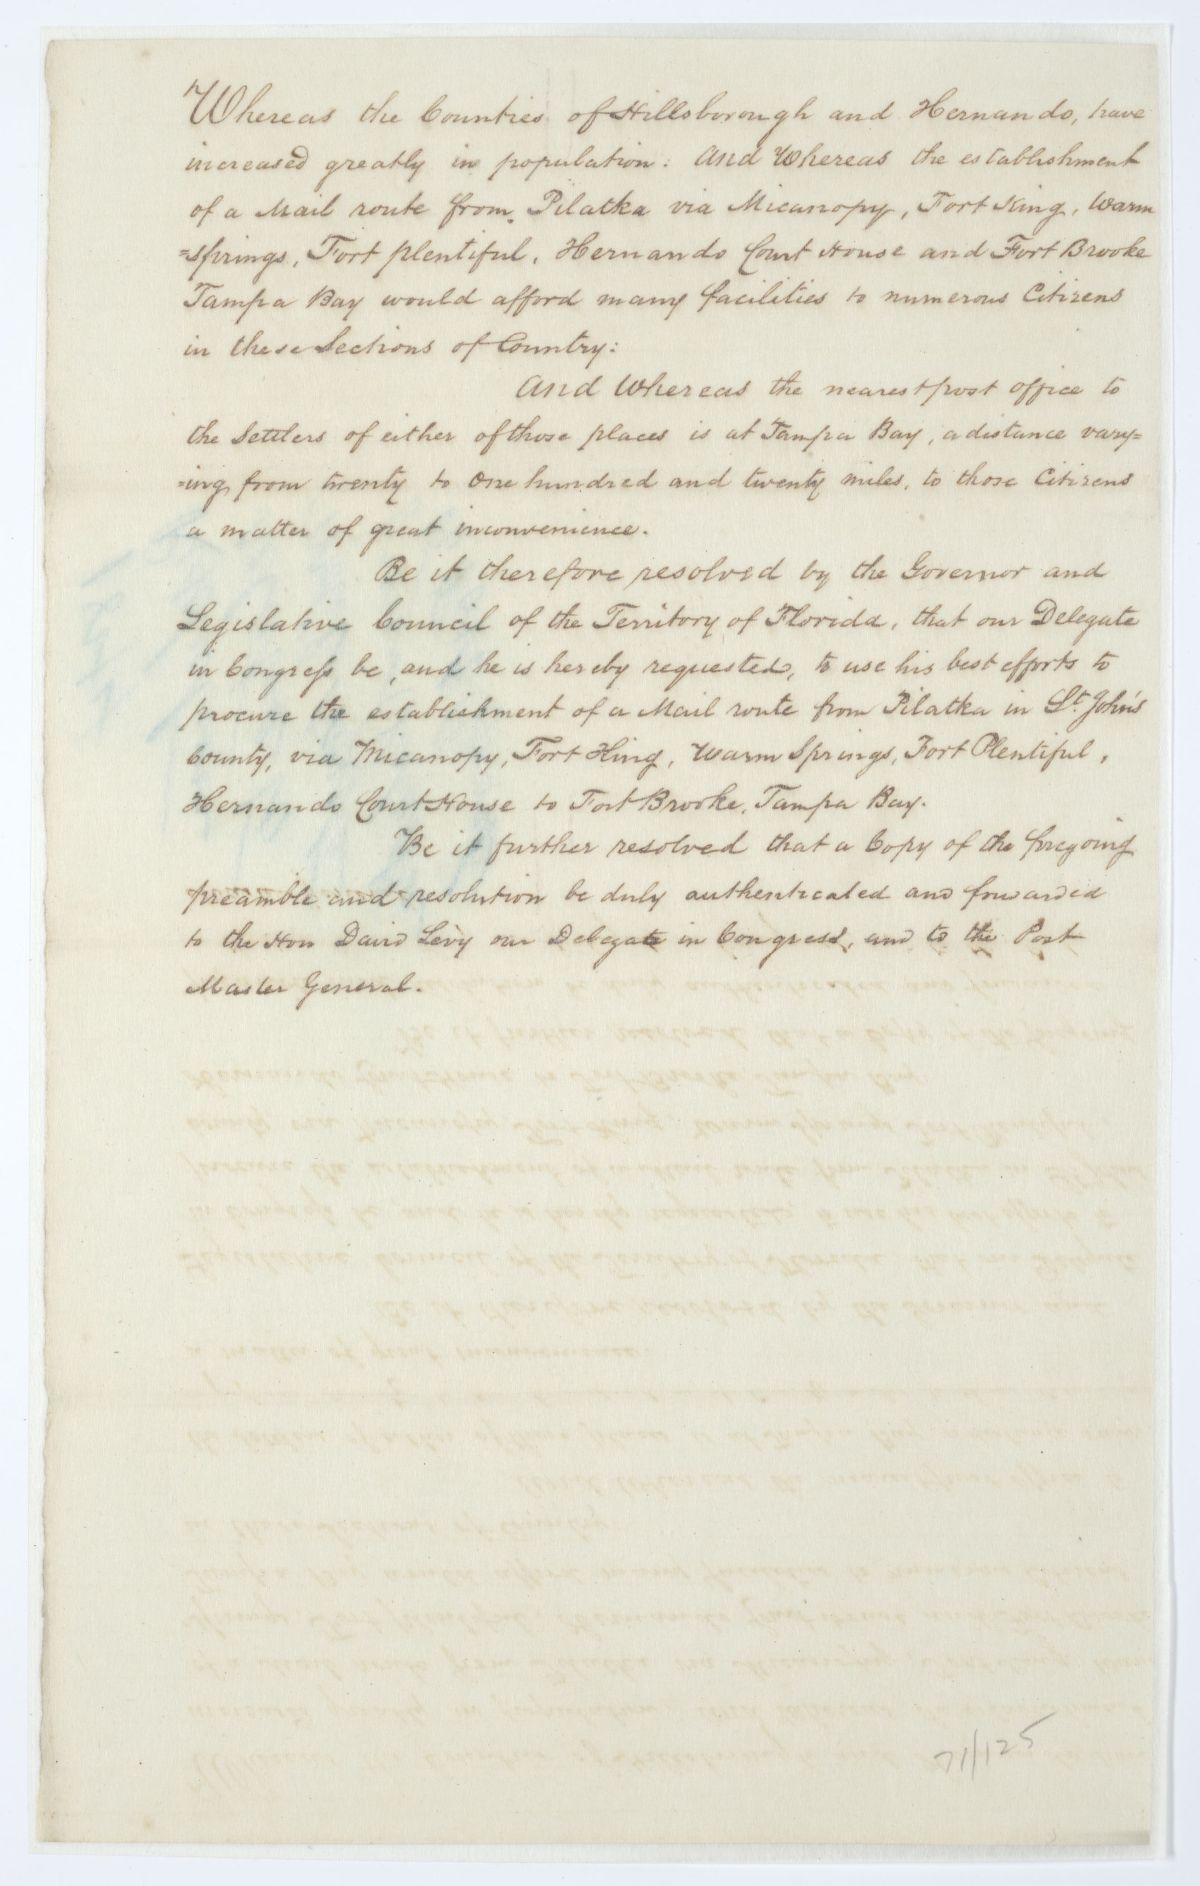 Whereas the Counties of Hillsborough and Hernando, have
increased greatly in population: And Whereas the establishment
of a Mail route from Pilatka via Micanopy, Fort King, Warm
=Springs, Fort plentiful, Hernando Court House and Fort Brooke
Tampa Bay would afford many facilities to numerous Citizens
in these Sections of Country:
And Whereas the nearest post office to
the Settlers of either of those places is at Tampa Bay, a distance vary=
=ing from twenty to one hundred and twenty miles, to those Citizens
a matter of great inconvenience.
Be it therefore resolved by the Governor and
Legislative Council of the Territory of Florida, that our Delegate
in Congress be, and he is hereby requested, to use his best efforts to
procure the establishment of a Mail route from Pilatka in St. John's
County, via Micanopy, Fort King, Warm Springs, Fort Plentiful,
Hernando Court House to Fort Brooke, Tampa Bay.
Be it further resolved that a Copy of the foregoing
preamble and resolution be duly authenticated and forwarded
to the Hon David Levy our Delegate in Congress, and to the Post
Master General.
71/125